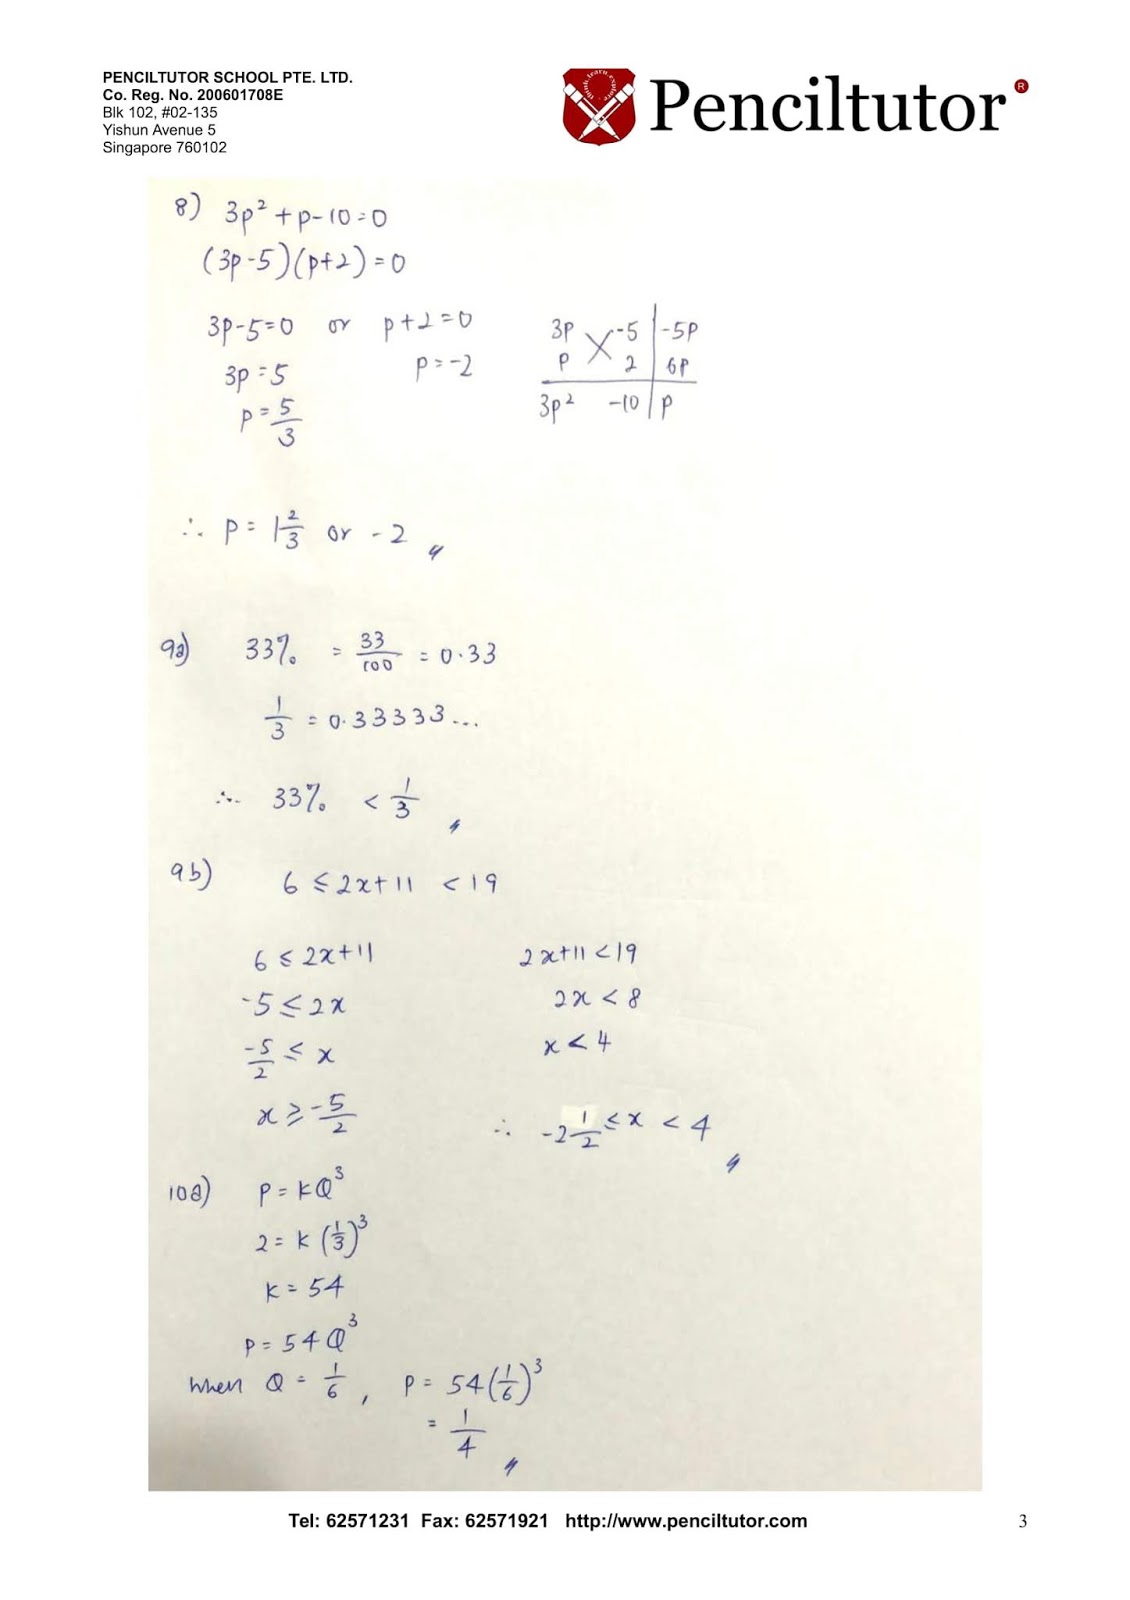 PENCILTUTOR SCHOOL PTE. LTD.
Co. Reg. No. 200601708E
Blk 102, #02-135
Yishun Avenue 5
Singapore 760102
think.learn.explore
Penciltutor®
8) 3p² + p - 10 = 0
(3p - 5)(p + 2) = 0
3p - 5 = 0 or p + 2 = 0
3p = 5 p = -2
p = 5/3
3p -5 | -5p
p 2 | 6p
3p² -10 | p
∴ p = 1 2/3 or -2
9a) 33% = 33/100 = 0.33
1/3 = 0.33333...
∴ 33% < 1/3
9b) 6 ≤ 2x + 11 < 19
6 ≤ 2x + 11 2x + 11 < 19
-5 ≤ 2x 2x < 8
-5/2 ≤ x x < 4
x ≥ -5/2 ∴ -2 1/2 ≤ x < 4
10a) P = kQ³
2 = k (1/3)³
k = 54
P = 54Q³
When Q = 1/6, P = 54(1/6)³
= 1/4
Tel: 62571231 Fax: 62571921 http://www.penciltutor.com
3